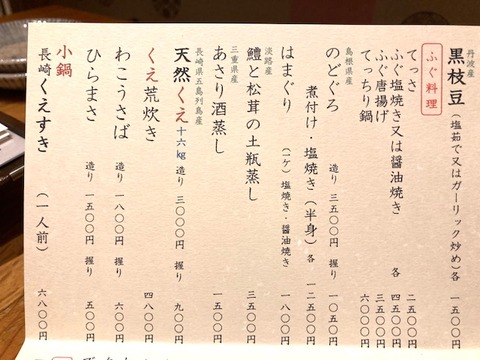 丹波産
黒枝豆（塩茹で又はガーリック炒め）各 一五〇〇円
ふぐ料理
てっさ 二五〇〇円
ふぐ塩焼き又は醤油焼き 各 四五〇〇円
ふぐ唐揚げ 三五〇〇円
てっちり鍋 六〇〇〇円
島根県産
のどぐろ 造り 三五〇〇円 握り 一〇五〇円
煮付け・塩焼き（半身）各 一二五〇〇円
はまぐり（一ケ）塩焼き・醤油焼き 一八〇〇円
淡路産
鱧と松茸の土瓶蒸し 三五〇〇円
三重県産
あさり酒蒸し 一五〇〇円
長崎県五島列島産
天然くえ 十六kg 造り 三〇〇〇円 握り 九〇〇円
くえ荒炊き 四八〇〇円
わこうさば 造り 一八〇〇円 握り 六〇〇円
ひらまさ 造り 一五〇〇円 握り 五〇〇円
小鍋
長崎くえすき（一人前） 六八〇〇円